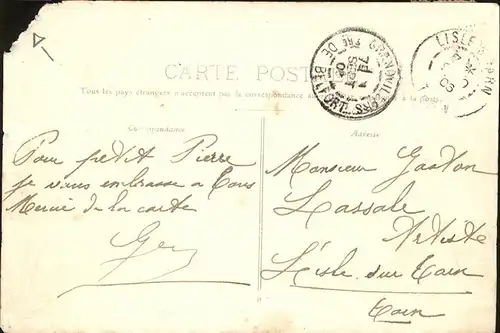 CARTE POSTALE
Tous les pays étrangers n'acceptent pas la correspondance
à la poste.
Correspondance
Adresse
Pour petit Pierre
je vous embrasse a tous
Merci de la carte
Gey
Monsieur Gaston
Lassale
Artiste
L'isle sur Tarn
Tarn
GRANDVILLARS
TRE DE BELFORT
LISLE
TARN